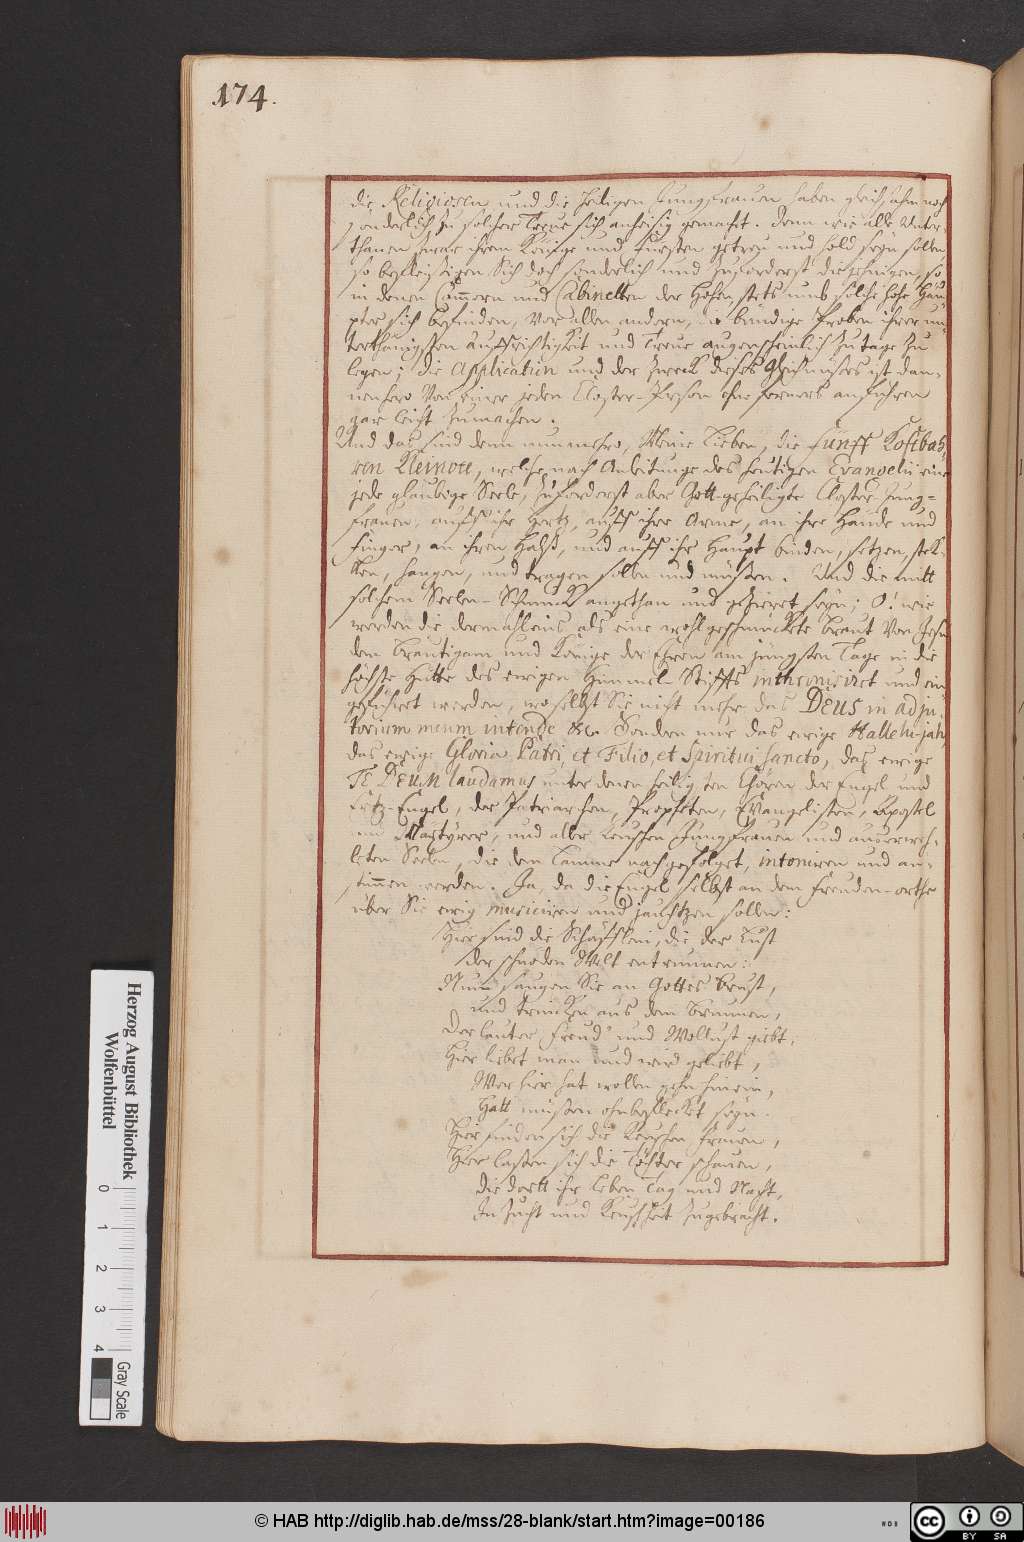 174.
die Religiosen und die heiligen Jungfrauen haben gleichsahm noch
sonderlich zu solcher Treue sich anheisig gemacht. Denn wie alle Unter-
thanen zwar ihrem Könige und Fürsten getreu und hold seyn sollen,
so befleissigen Sich doch sonderlich und zuforderst diejenigen, so
in denen Cammern und Cabinetten der Hohen, stets umb solche hohe Häu-
pter sich befinden, vor allen andern, die bündige Proben ihrer un-
terthänigsten Auffrichtigkeit und Treue augenscheinlich zu tage zu
legen; die Application und der Zweck dieses Gleichnüses ist dan-
nenhero von einer jeden Closter-Person ohne ferneres anführen
gar leicht zumachen.
Und das sind denn nunmehro, Meine Lieben, die fünff Kostbah-
ren Kleinote, welche nach Anleitunge des heutigen Evangelii eine
jede glaubige Seele, zuforderst aber Gott-geheiligte Closter-Jung-
frauen, auff ihr Hertz, auff ihre Arme, an ihre Hände und
Finger, an ihren Halß, und auff ihr Haupt binden, setzen, stek-
ken, hangen, und tragen sollen und müßen. Und die mitt
solchem Seelen-Schmuck angethan und gezieret seyn; O! wie
werden die dermahleins, als eine wohl geschmückte Braut von Jesu
dem Bräutigam und Könige der Ehren am jüngsten Tage in die
höchste Hütte des ewigen Himmel Stiffts inthronisiret und ein
geführet werden, woselbst Sie nicht mehr das Deus in adju-
torium meum intende &c. Sondern nur das ewige Hallelu-jah,
das ewige Gloria Patri, et Filio, et Spiritui sancto, das ewige
Te Deum laudamus unter denen heiligsten Chören der Engel und
Ertz-Engel, der Patriarchen, Propheten, Evangelisten, Apostel
und Martyrer, und aller keuschen Jungfrauen und auserweh-
leten Seelen, die dem Lamme nachgefolget, intoniren und an-
stimmen werden. Ja, da die Engel selbst an dem Freuden-orthe
über Sie ewig musiciren und jauchtzen sollen:
Hier sind die Schäfflein, die der Lust
der schnöden Welt entrunnen:
Nun saugen Sie an Gottes Brust,
und trincken aus dem Brunnen,
Der lauter Freud' und Wollust giebt,
Hier liebet man und wird geliebt,
Wer hier hat wollen gehn hinein,
Hatt müßen ohnbeflecket seyn.
Hier finden sich die keuschen Frauen,
Hier lassen sich die Töchter schauen,
die dortt ihr Leben Tag und Nacht,
In Zucht und Keuschheit zugebracht.
Herzog August Bibliothek
Wolfenbüttel
0 1 2 3 4
Gray Scale
© HAB http://diglib.hab.de/mss/28-blank/start.htm?image=00186
WDB
cc BY SA